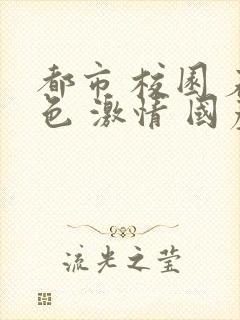 都市 校园 
色 激情 国
流光之莹